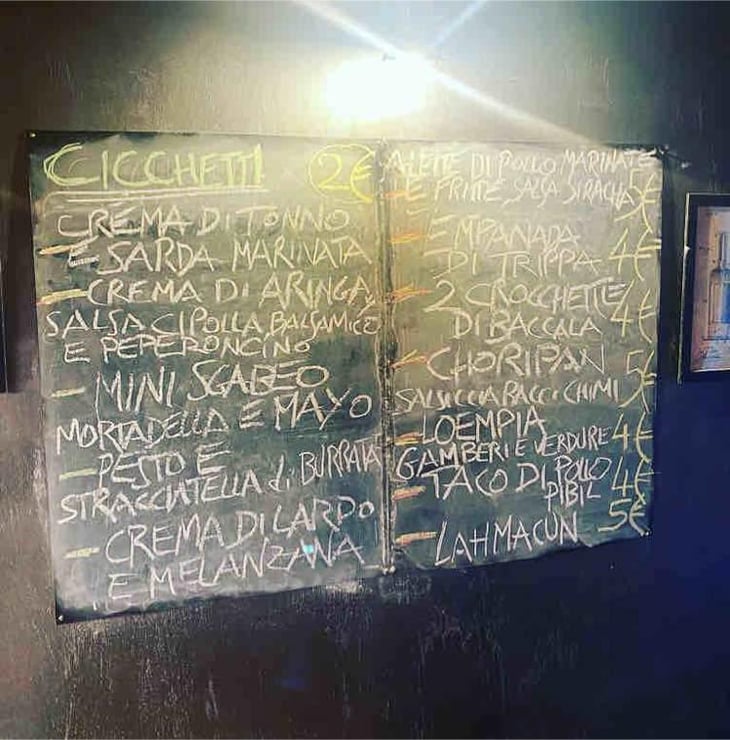 CICCHETTI 2€
CREMA DI TONNO
E SARDA MARINATA
- CREMA DI ARINGA,
SALSA CIPOLLA BALSAMICO
E PEPERONCINO
- MINI SGABEO
MORTADELLA E MAYO
- PESTO E
STRACCIATELLA di BURRATA
- CREMA DI LARDO
E MELANZANA
ALETTE DI POLLO MARINATE
E FRITTE, SALSA SIRACHA 5€
- EMPANADA
DI TRIPPA 4€
- 2 CROCCHETTE
DI BACCALA 4€
- CHORIPAN
SALSICCIA RACCO CHIMI 5€
- LOEMPIA
GAMBERI E VERDURE 4€
- TACO DI POLLO
PIBIL 4€
- LAHMACUN 5€